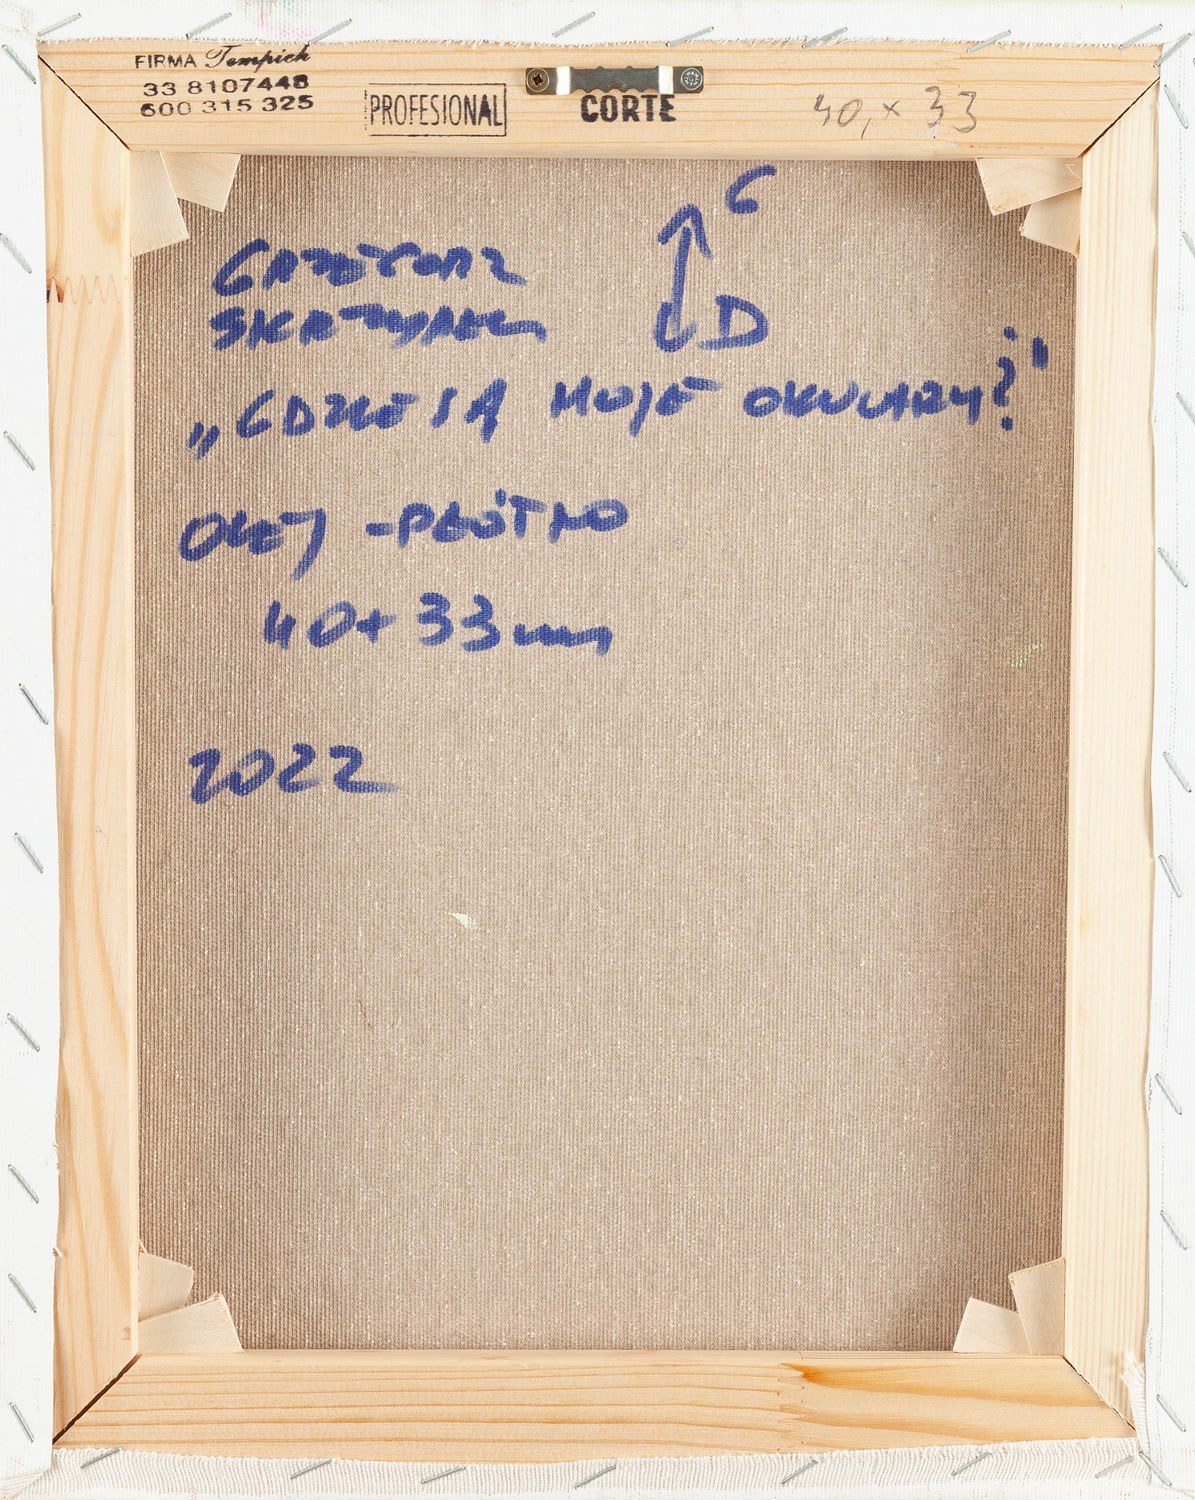 FIRMA Tempich
33 8107448
600 315 325
PROFESIONAL
CORTE
40,× 33
G
D
GRZEGORZ
SKRZYPEK
„GDZIE SĄ MOJE OKULARY?"
OLEJ - PŁÓTNO
40 × 33 cm
2022